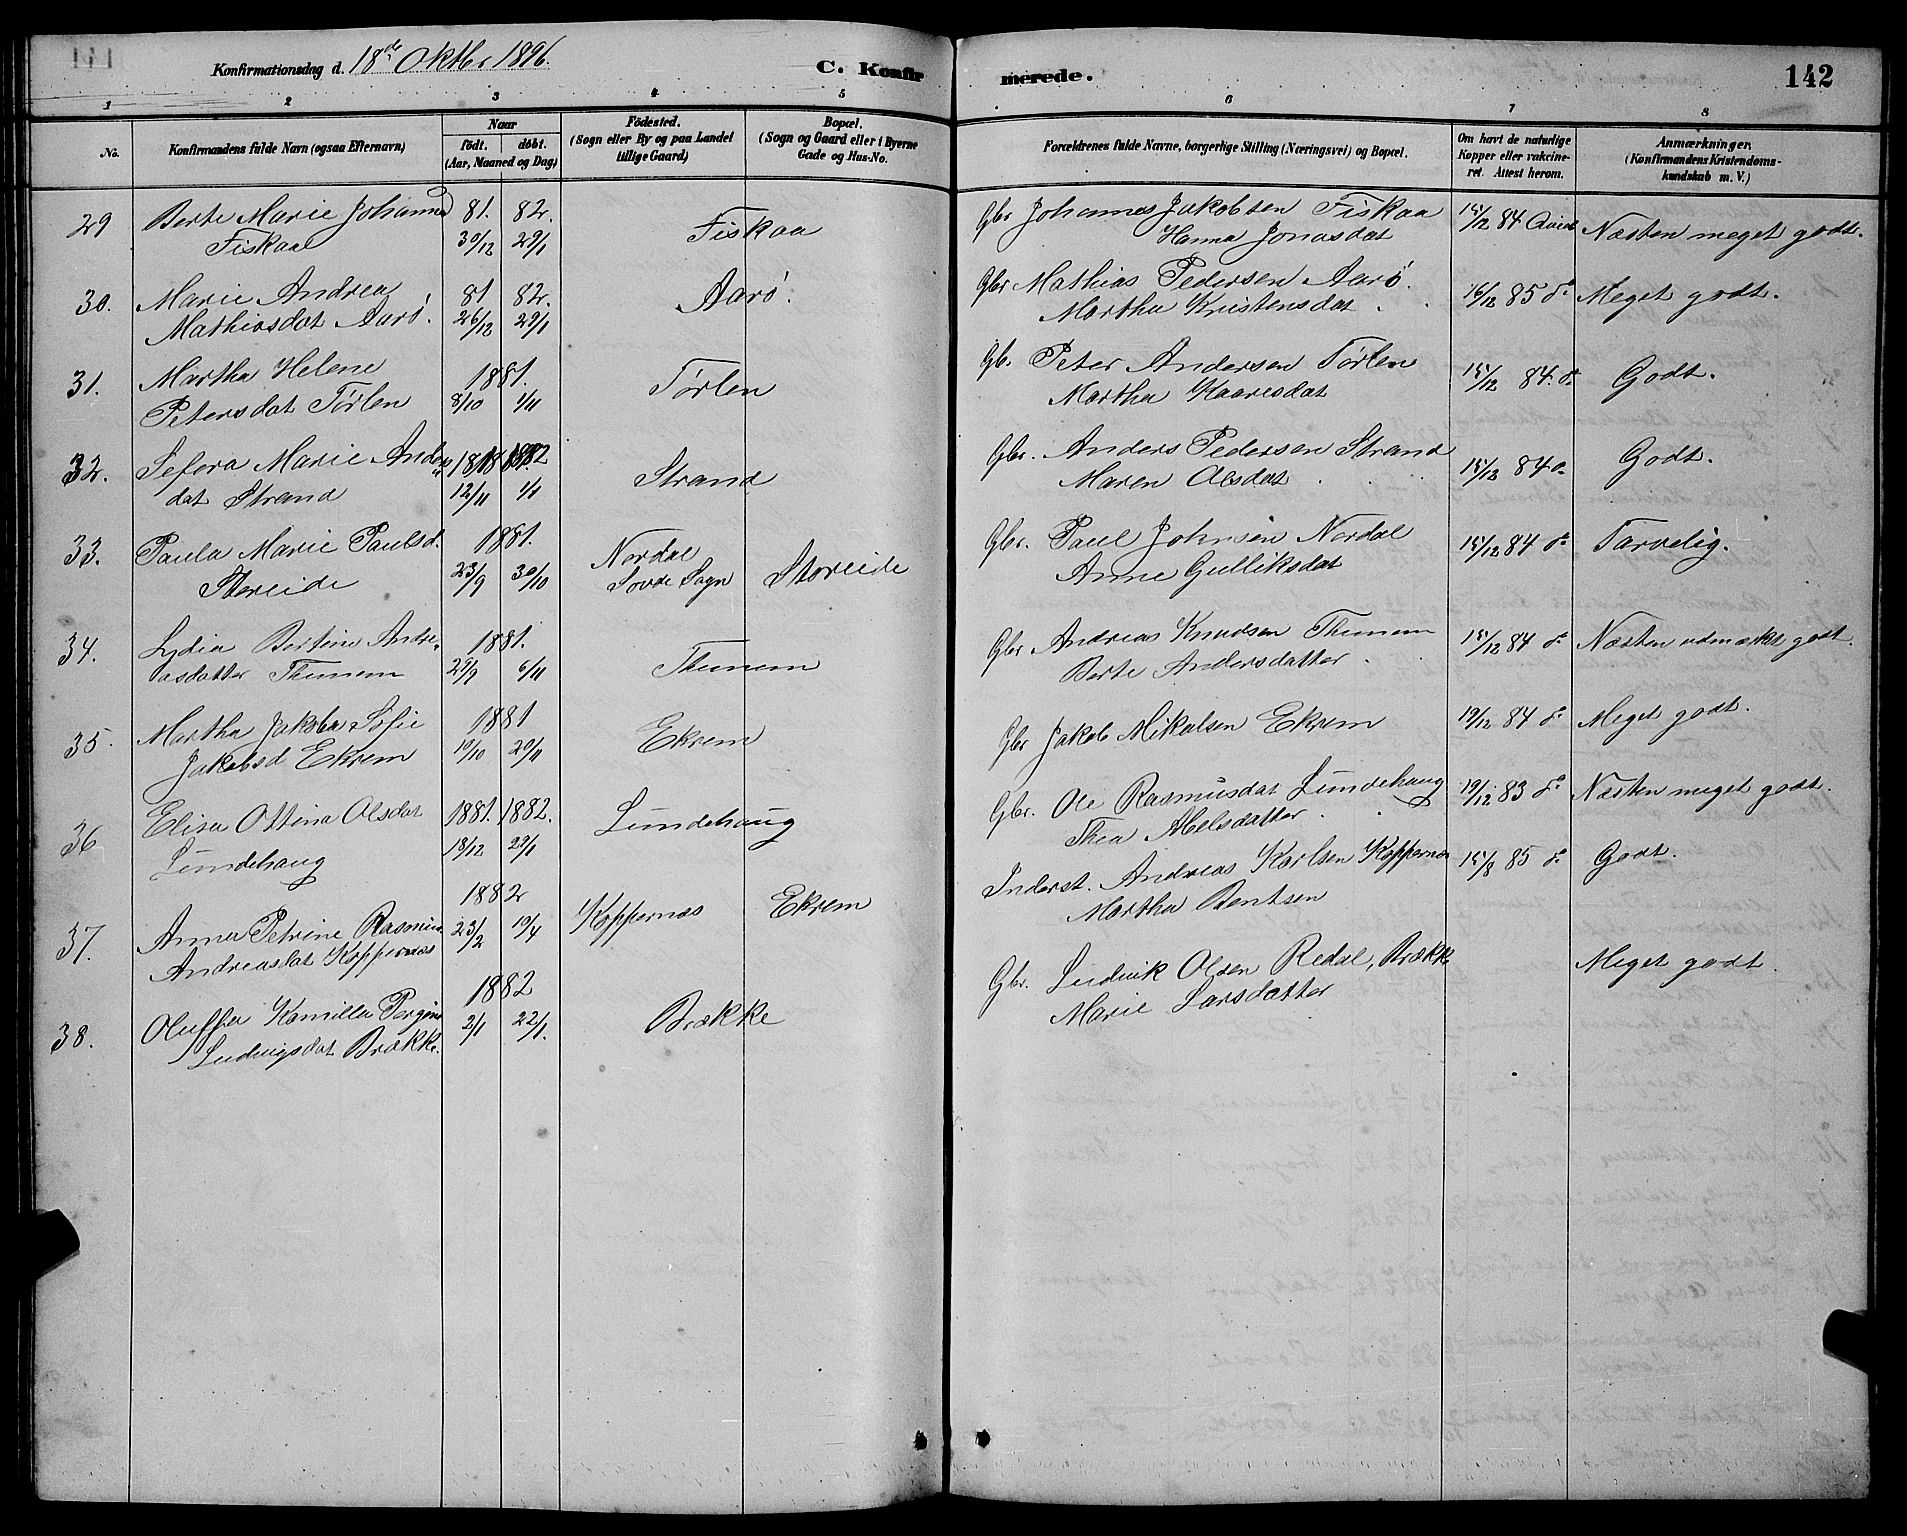 Konfirmationsdag d. 18de Oktbr 1896.
C. Konfirmerede.
142
1 2 3 4 5 6 7 8
No.
Konfirmandens fulde Navn (ogsaa Efternavn)
Naar
födt. döbt.
(Aar, Maaned og Dag)
Födested.
(Sogn eller By og paa Landet
tillige Gaard)
Bopæl.
(Sogn og Gaard eller i Byerne
Gade og Hus-No.
Forældrenes fulde Navne, borgerlige Stilling (Næringsvei) og Bopæl.
Om havt de naturlige
Kopper eller vakcine-
ret. Attest herom.
Anmærkninger.
(Konfirmandens Kristendoms-
kundskab m. V.)
29 Berte Marie Johannesd 81. 82. Gbr Johannes Jakobsen Fiskaa 15/12 84
Fiskaa 30/12 29/1 Fiskaa Hanna Jonasdat Næsten meget godt.
30. Marie Andrea 81 82. Aarö. Gbr Mathias Pedersen Aarö. 16/12 85 do Meget godt.
Mathiasdat Aarö. 26/12 29/1 Martha Kristensdat
31. Martha Helene 1881. Törlen Gb. Peter Andersen Törlen 15/12 84. do Godt.
Petersdat Törlen 8/10 1/11 Martha Kaaresdat
32. Sefora Marie Anders 1881 1882 Strand Gbr. Anders Pedersen Strand 15/12 84 do Godt.
dat Strand 12/11 1/1 Maren Olsdat
33. Paula Marie Paulsd. 1881. Nordal Storeide Gbr. Paul Johnsen Nordal 15/12 84 do Tarvelig.
Storeide 23/9 30/10 Sovde Sogn Anne Gulliksdat
34. Lydia Bertine Andre- 1881. Thunem Gbr Andreas Knudsen Thunem 15/12 84 do Næsten udmærket godt.
asdatter Thunem 29/9 6/11 Berte Andersdatter
35. Martha Jakoba Sofie 1881 Ekrem Gbr Jakob Mikalsen Ekrem 19/12 84 do Meget godt.
Jakobsd Ekrem 10/10 20/11
36 Elisa Ottina Olsdat 1881. 1882. Lundehaug Gbr. Ole Rasmusdat Lundehaug 19/12 83 do Næsten meget godt.
Lundehaug 18/12 29/1 Thea Abelsdatter
37. Anna Petrine Rasmine 1882 Koppernæs Ekrem Inderst. Andreas Karlsen Koppernæs 15/8 85 do Godt.
Andreasdat Koppernæs 23/2 10/4 Martha Bentsen
38. Oluffa Kamilla 1882 Brække Gbr. Ludvik Olsen Redal, Brække Meget godt.
Ludvigsdat Brække. 2/1 22/1. Marie Larsdatter